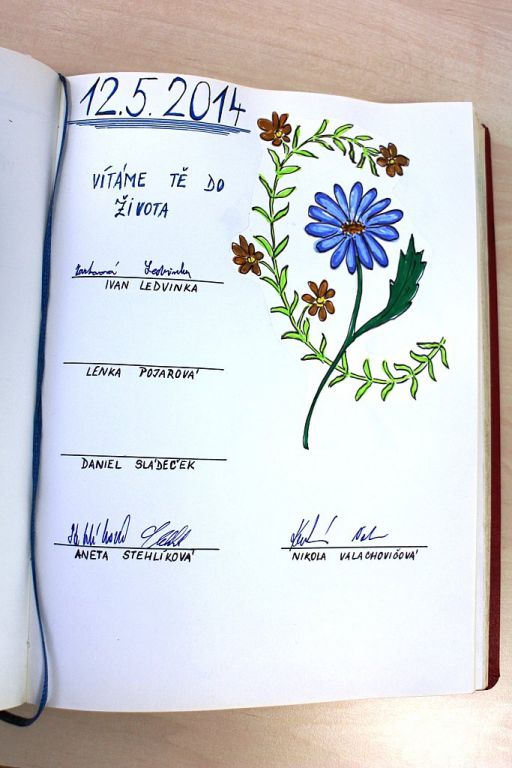 12.5.2014
VÍTÁME TĚ DO
ŽIVOTA
Ledvinka
IVAN LEDVINKA
LENKA POJAROVÁ
DANIEL SLÁDEČEK
ANETA STEHLÍKOVÁ
NIKOLA VALACHOVIČOVÁ